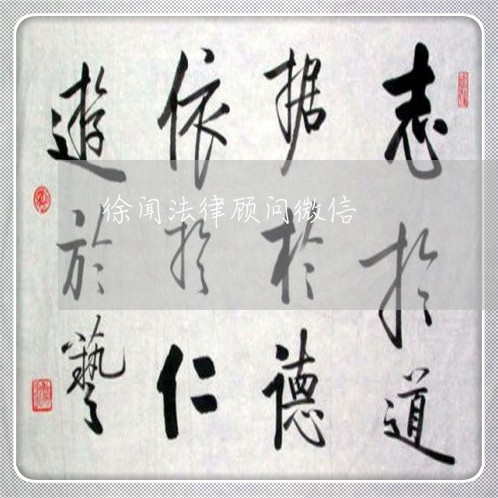 志於道
据於德
依於仁
遊於藝
徐闻法律顾问微信